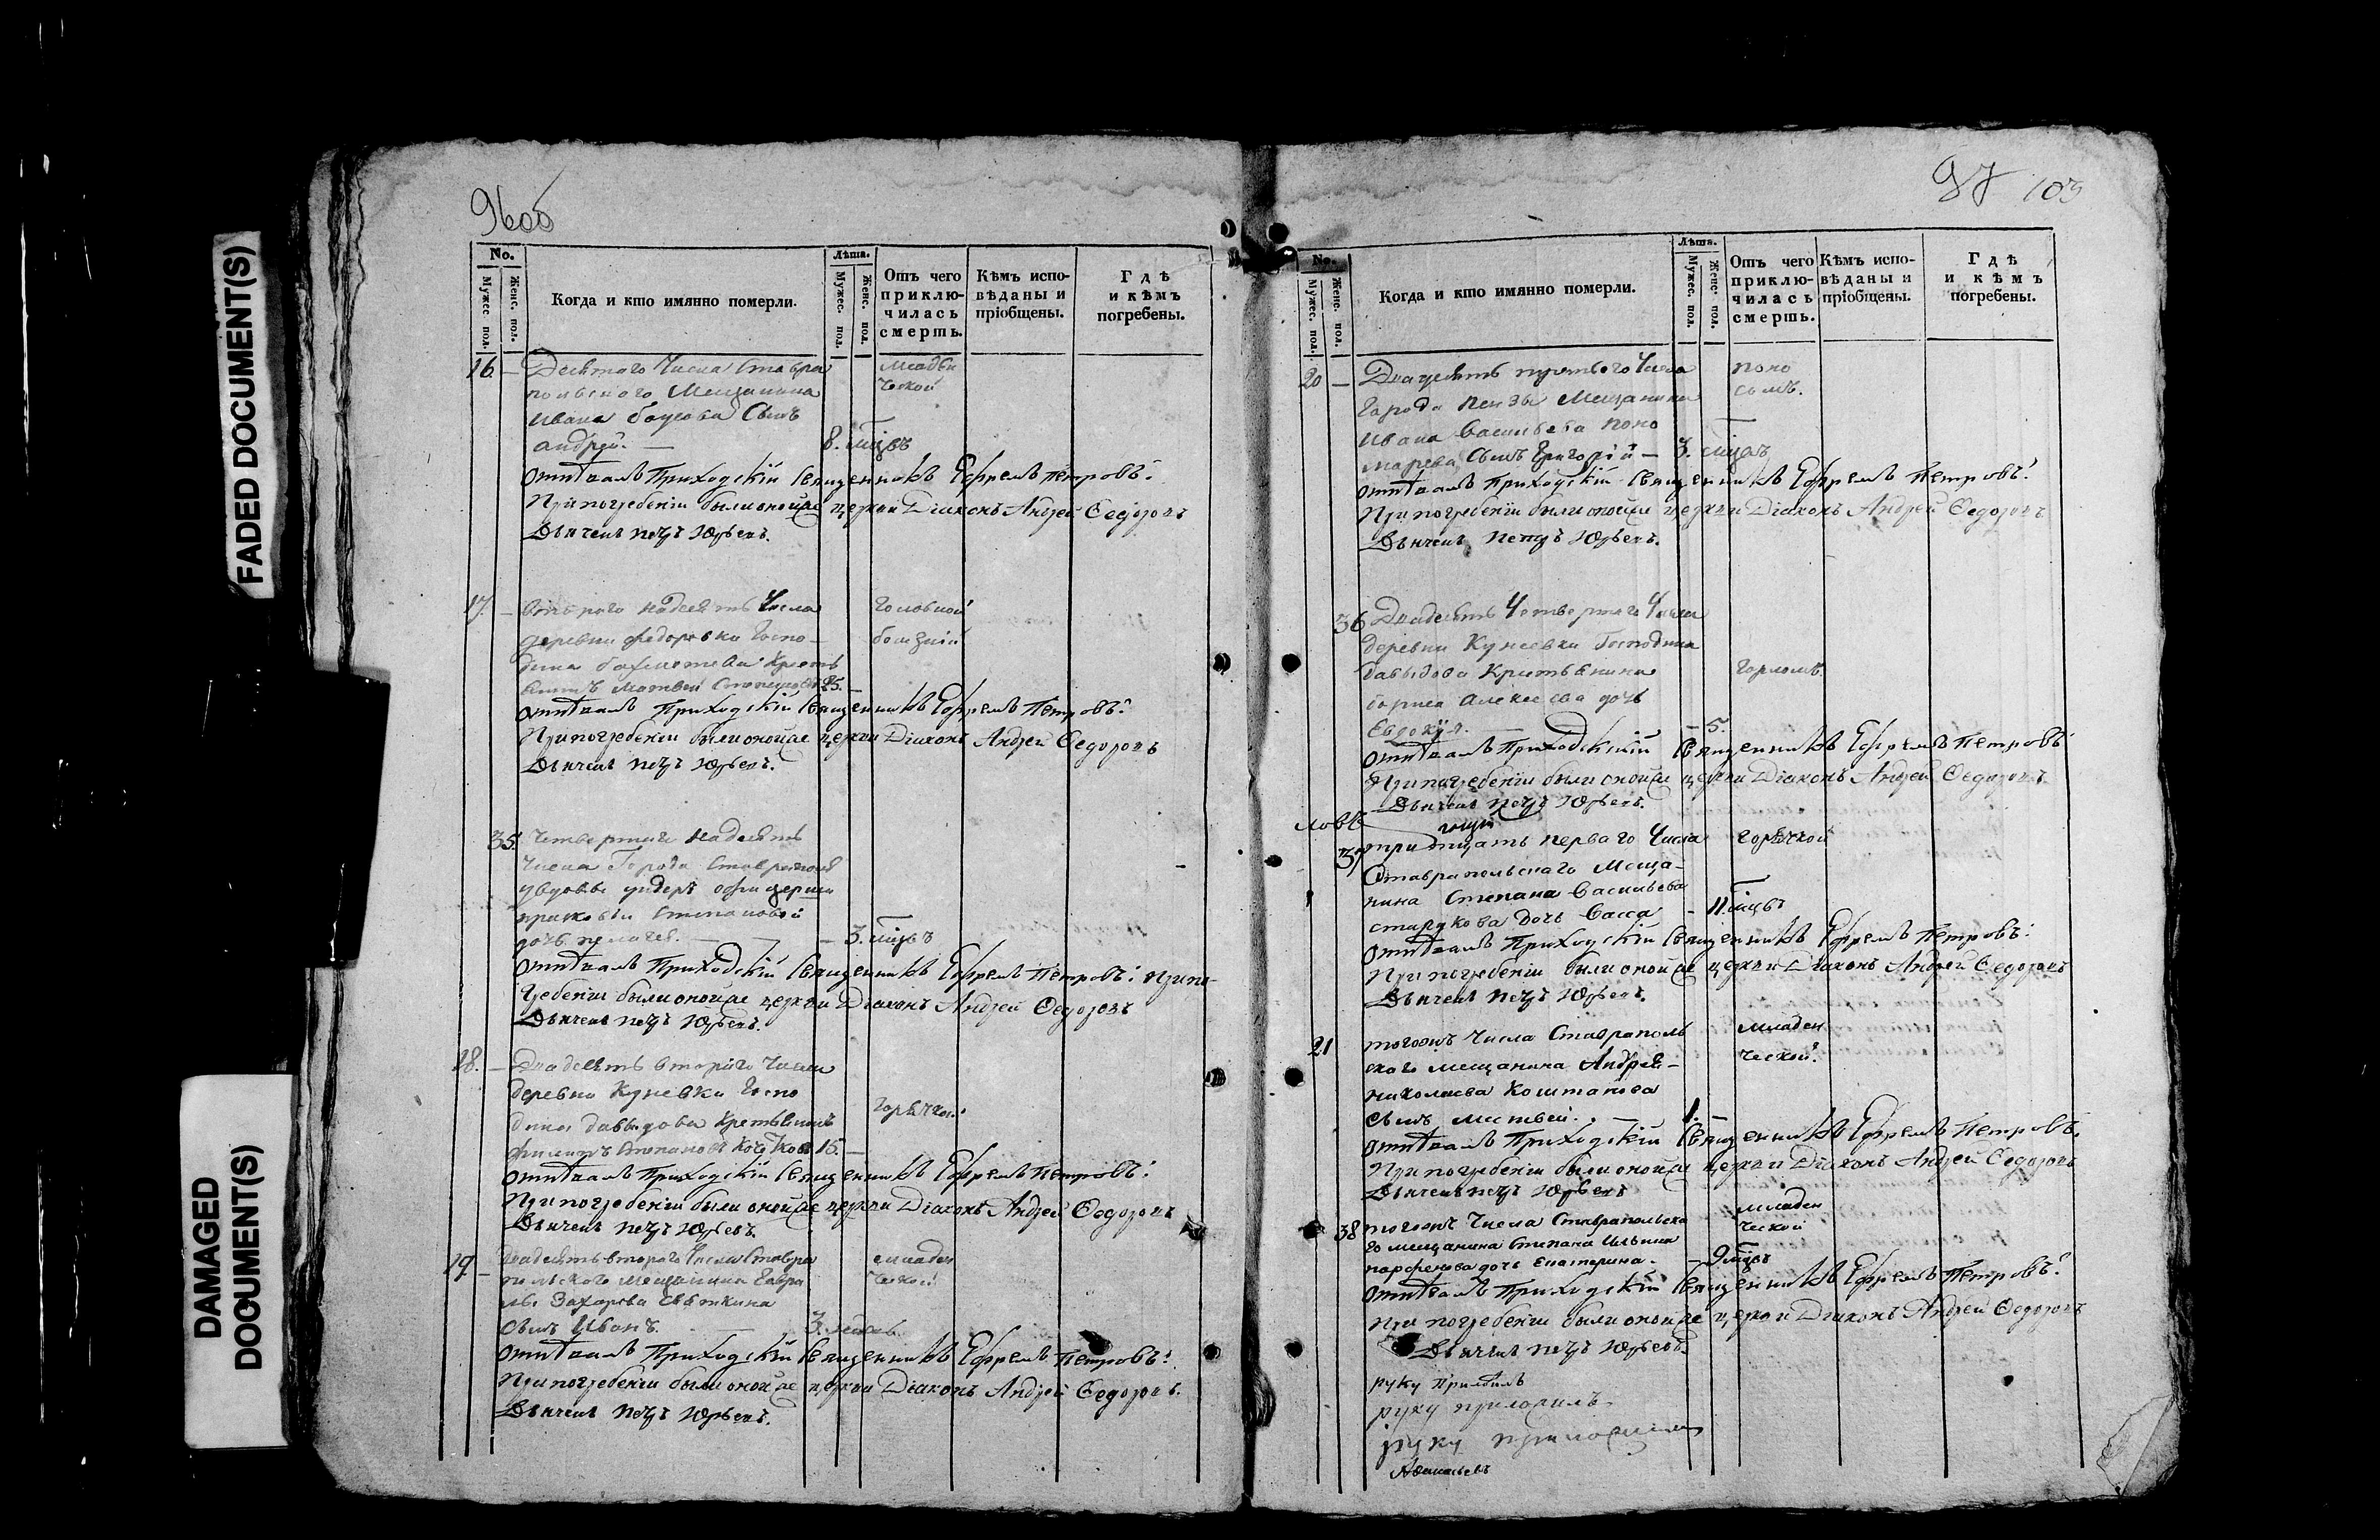 FADED DOCUMENT(S)
DAMAGED
DOCUMENT(S)
96об
No.
Мужес. пол.
Женс. пол.
Когда и кто имянно померли.
Лѣта.
Мужес. пол.
Женс. пол.
Отъ чего приклю-
чилась
смерть.
Кѣмъ испо-
вѣданы и
пріобщены.
Гдѣ
и кѣмъ
погребены.
16. — Десятаго Числа Ставро
польского Мещанина
Ивана Сынъ
Андрей. — 8. мцовъ
младен
ческой
отпѣвалъ Приходскій Священникъ Ефремъ Петровъ.
При погребеніи были оной же церкви Діаконъ Андрей Ѳедоровъ
Дьячекъ Петръ Юрьевъ.
17. — Втораго надесять Числа
деревни Федоровки Госпо-
дина Бахметева Крестья
нинъ Матвей 25. —
головной
болезнію
отпѣвалъ Приходскій Священникъ Ефремъ Петровъ.
При погребеніи были оной же церкви Діаконъ Андрей Ѳедоровъ
Дьячекъ Петръ Юрьевъ.
35. Четвертаго надесять
числа Города Ставрополя
у вдовы ундеръ офицерши
прасковьи Степановой
дочь пелагея. — — 3. мцовъ
отпѣвалъ Приходскій Священникъ Ефремъ Петровъ. При по-
гребеніи были оной же церкви Діаконъ Андрей Ѳедоровъ
Дьячекъ Петръ Юрьевъ.
18. — Двадесять втораго числа
деревни Кунеевки Госпо
дина давыдова Крестьянинъ
Филипъ Степановъ 15. —
горячкой
отпѣвалъ Приходскій Священникъ Ефремъ Петровъ.
При погребеніи были оной же церкви Діаконъ Андрей Ѳедоровъ
Дьячекъ Петръ Юрьевъ.
19 — Двадесять втораго Числа Ставро
польского мещанина Гаври
лы Захарова
Сынъ Иванъ. — 3.
младен
ческой
отпѣвалъ Приходскій Священникъ Ефремъ Петровъ.
При погребеніи были оной же церкви Діаконъ Андрей Ѳедоровъ.
Дьячекъ Петръ Юрьевъ.
97 103
No.
Мужес. пол.
Женс. пол.
Когда и кто имянно померли.
Лѣта.
Мужес. пол.
Женс. пол.
Отъ чего
приклю-
чилась
смерть.
Кѣмъ испо-
вѣданы и
пріобщены.
Гдѣ
и кѣмъ
погребены.
20 — Двадесять третьего Числа
Города Пензы Мещанина
Ивана Васильева поно
марева Сынъ Григорій — 3. мцовъ
поно
сомъ.
отпѣвалъ Приходскій Священникъ Ефремъ Петровъ.
При погребеніи были оной же церкви Діаконъ Андрей Ѳедоровъ
Дьячекъ Петръ Юрьевъ.
36 Двадесять Четвертаго Числа
деревни Кунеевки Господина
давыдова Крестьянина
бориса Алексеева дочь
Евдокия. — — 5.
горломъ.
отпѣвалъ Приходскій Священникъ Ефремъ Петровъ
При погребеніи были оной же церкви Діаконъ Андрей Ѳедоровъ
Дьячекъ Петръ Юрьевъ.
37 тридцать перваго Числа
Ставропольскаго Меща-
нина Степана Васильева
дочь Васса — 11. мцовъ
горячкой
отпѣвалъ Приходскій Священникъ Ефремъ Петровъ.
При погребеніи были оной же церкви Діаконъ Андрей Ѳедоровъ
Дьячекъ Петръ Юрьевъ.
21 тогожъ Числа Ставрополь
скаго мещанина Андрея
николаева Коштанова
сынъ матвей. — 1. —
младен
ческой.
отпѣвалъ Приходскій Священникъ Ефремъ Петровъ.
При погребеніи были оной же церкви Діаконъ Андрей Ѳедоровъ
Дьячекъ Петръ Юрьевъ
38 тогожъ Числа Ставропольска
го мещанина Степана Ильина
парфенова дочь Екатерина. — 9 мцовъ
младен
ческой
отпѣвалъ Приходскій Священникъ Ефремъ Петровъ.
При погребеніи были оной же церкви Діаконъ Андрей Ѳедоровъ
Дьячекъ Петръ Юрьевъ.
руку приложилъ
руку приложилъ
руку приложилъ